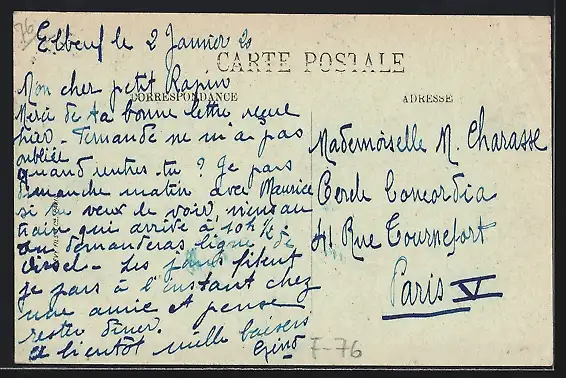 76
Elbeuf le 2 Janvier 20
CARTE POSTALE
CORRESPONDANCE
ADRESSE
Mon cher petit Rapin
Merci de ta bonne lettre reçue
hier. Fernande ne m'a pas
oubliée
quand rentres-tu ? Je pars
dimanche matin avec Maurice
si tu veux le voir, viens au
train qui arrive à 10h ½
tu demanderas ligne de
Oissel. Les jours filent
je pars à l'instant chez
une amie et pense
rester dîner.
A bientôt mille baisers
Mademoiselle M. Charasse
Cercle Concordia
41 Rue Tournefort
Paris V
F-76